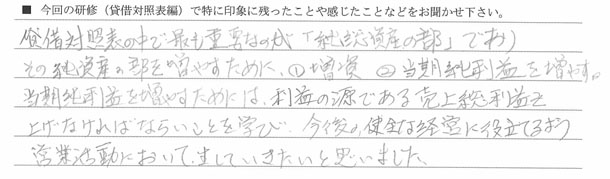 ■ 今回の研修（貸借対照表編）で特に印象に残ったことや感じたことなどをお聞かせ下さい。
貸借対照表の中で最も重要なのが「純総資産の部」であり
その純資産の部を増やすために、①増資 ②当期純利益を増やす。
当期純利益を増やすためには、利益の源である売上総利益を
上げなければならいことを学び、今後の健全な経営に役立てるよう
営業活動において、生していきたいと思いました。